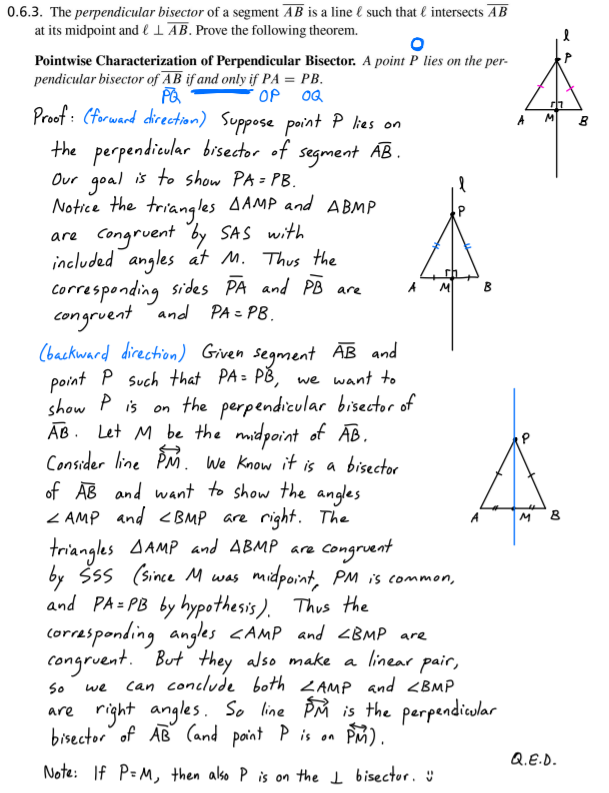 0.6.3. The perpendicular bisector of a segment A̅B̅ is a line ℓ such that ℓ intersects A̅B̅
at its midpoint and ℓ ⊥ A̅B̅. Prove the following theorem.
O
Pointwise Characterization of Perpendicular Bisector. A point P lies on the per-
pendicular bisector of A̅B̅ if and only if PA = PB.
P̅Q̅ OP OQ
Proof: (forward direction) Suppose point P lies on
the perpendicular bisector of segment A̅B̅.
Our goal is to show PA = PB.
Notice the triangles △AMP and △BMP
are congruent by SAS with
included angles at M. Thus the
corresponding sides P̅A̅ and P̅B̅ are
congruent and PA = PB.
ℓ
P
A M B
ℓ
P
A M B
(backward direction) Given segment A̅B̅ and
point P such that PA = PB, we want to
show P is on the perpendicular bisector of
A̅B̅. Let M be the midpoint of A̅B̅.
Consider line P͍M. We know it is a bisector
of A̅B̅ and want to show the angles
∠AMP and ∠BMP are right. The
triangles △AMP and △BMP are congruent
by SSS (since M was midpoint, PM is common,
and PA = PB by hypothesis). Thus the
corresponding angles ∠AMP and ∠BMP are
congruent. But they also make a linear pair,
so we can conclude both ∠AMP and ∠BMP
are right angles. So line P͍M is the perpendicular
bisector of A̅B̅ (and point P is on P͍M).
P
A M B
Q.E.D.
Note: If P=M, then also P is on the ⊥ bisector. ü